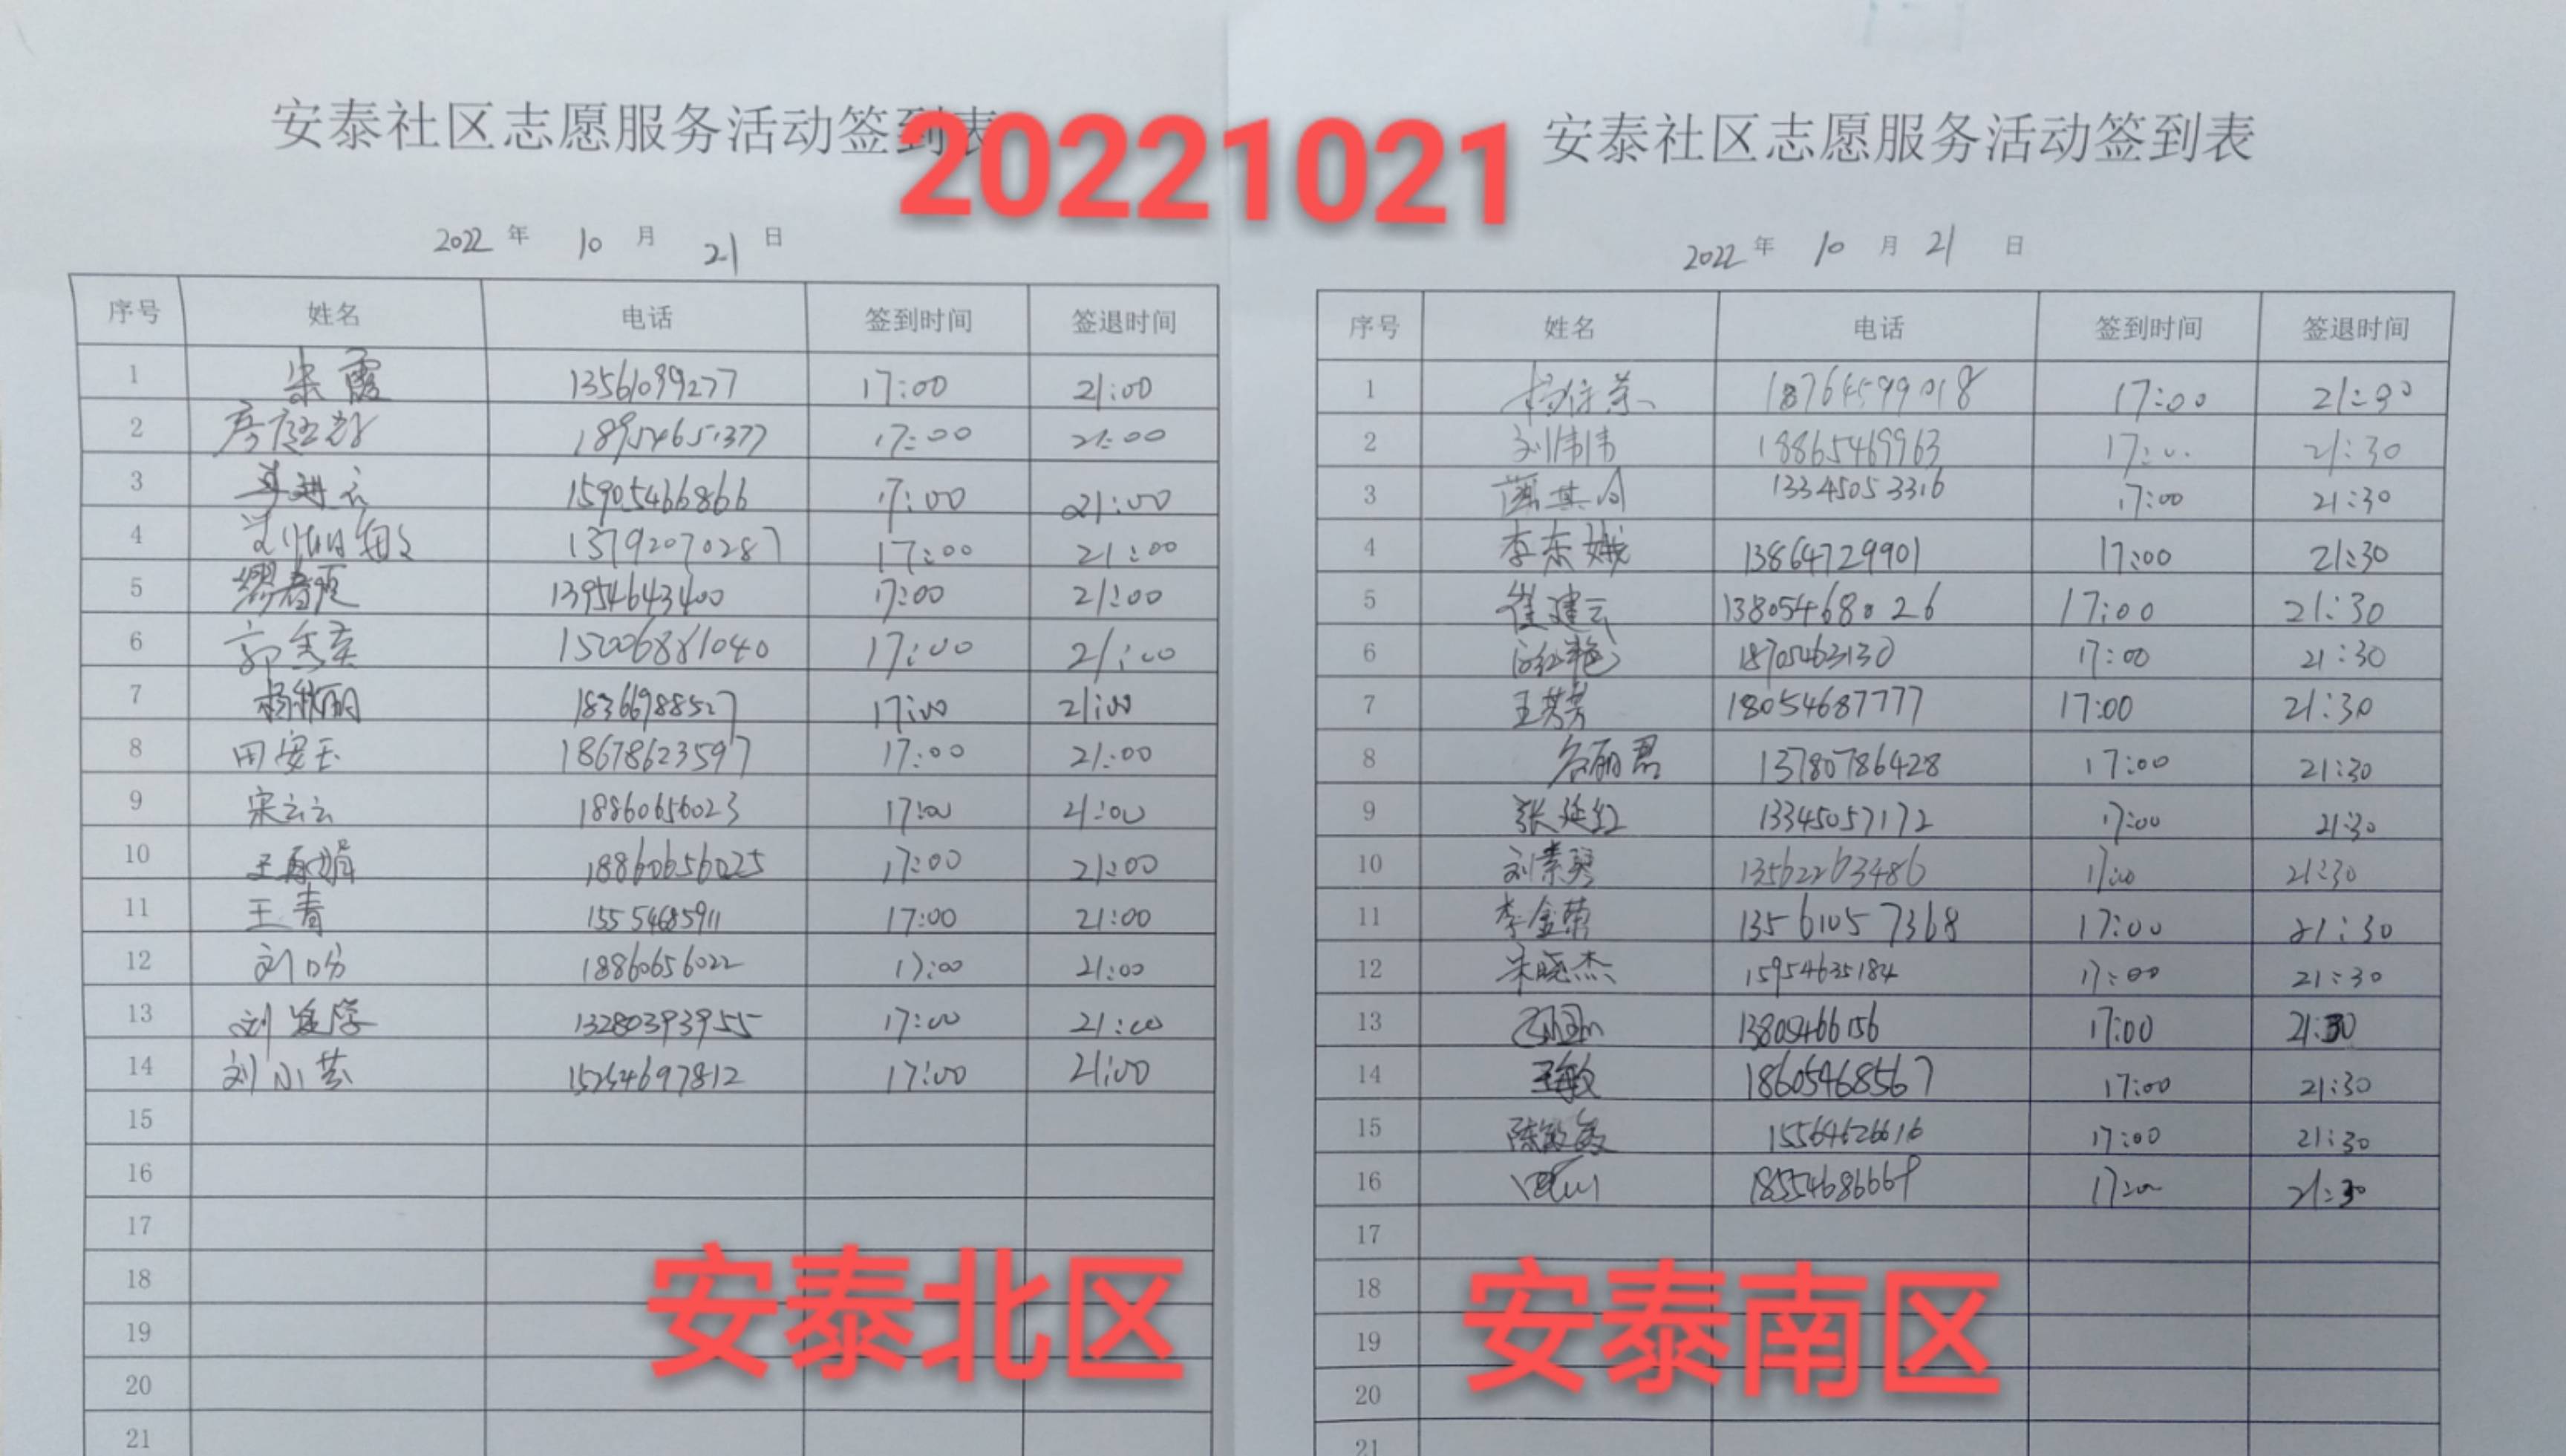 安泰社区志愿服务活动签到表
20221021
2022 年 10 月 21 日
序号 姓名 电话 签到时间 签退时间
1 朱霞 13561099277 17:00 21:00
2 18954651377 17:00 21:00
3 15905466866 17:00 21:00
4 13792070287 17:00 21:00
5 13954643400 17:00 21:00
6 17:00 21:00
7 杨秋丽 18366988527 17:00 21:00
8 田安玉 18678623597 17:00 21:00
9 宋云云 18860656023 17:00 21:00
10 18860656025 17:00 21:00
11 王青 15554685911 17:00 21:00
12 18860656022 17:00 21:00
13 13280393955 17:00 21:00
14 刘小芸 15254697812 17:00 21:00
15
16
17
18
19
20
21
安泰北区
安泰社区志愿服务活动签到表
2022 年 10 月 21 日
序号 姓名 电话 签到时间 签退时间
1 18764599018 17:00 21:30
2 刘伟伟 18865469963 17:00 21:30
3 13345053316 17:00 21:30
4 李东娥 13864729901 17:00 21:30
5 崔建云 13805468026 17:00 21:30
6 18705463130 17:00 21:30
7 王芳芳 18054687777 17:00 21:30
8 13780786428 17:00 21:30
9 张延红 13345057172 17:00 21:30
10 刘素琴 13562263486 17:00 21:30
11 李金荣 13561057368 17:00 21:30
12 宋晓杰 15954635184 17:00 21:30
13 13805466156 17:00 21:30
14 王敏 18605468567 17:00 21:30
15 15564626616 17:00 21:30
16 18554686669 17:00 21:30
17
18
19
20
21
安泰南区